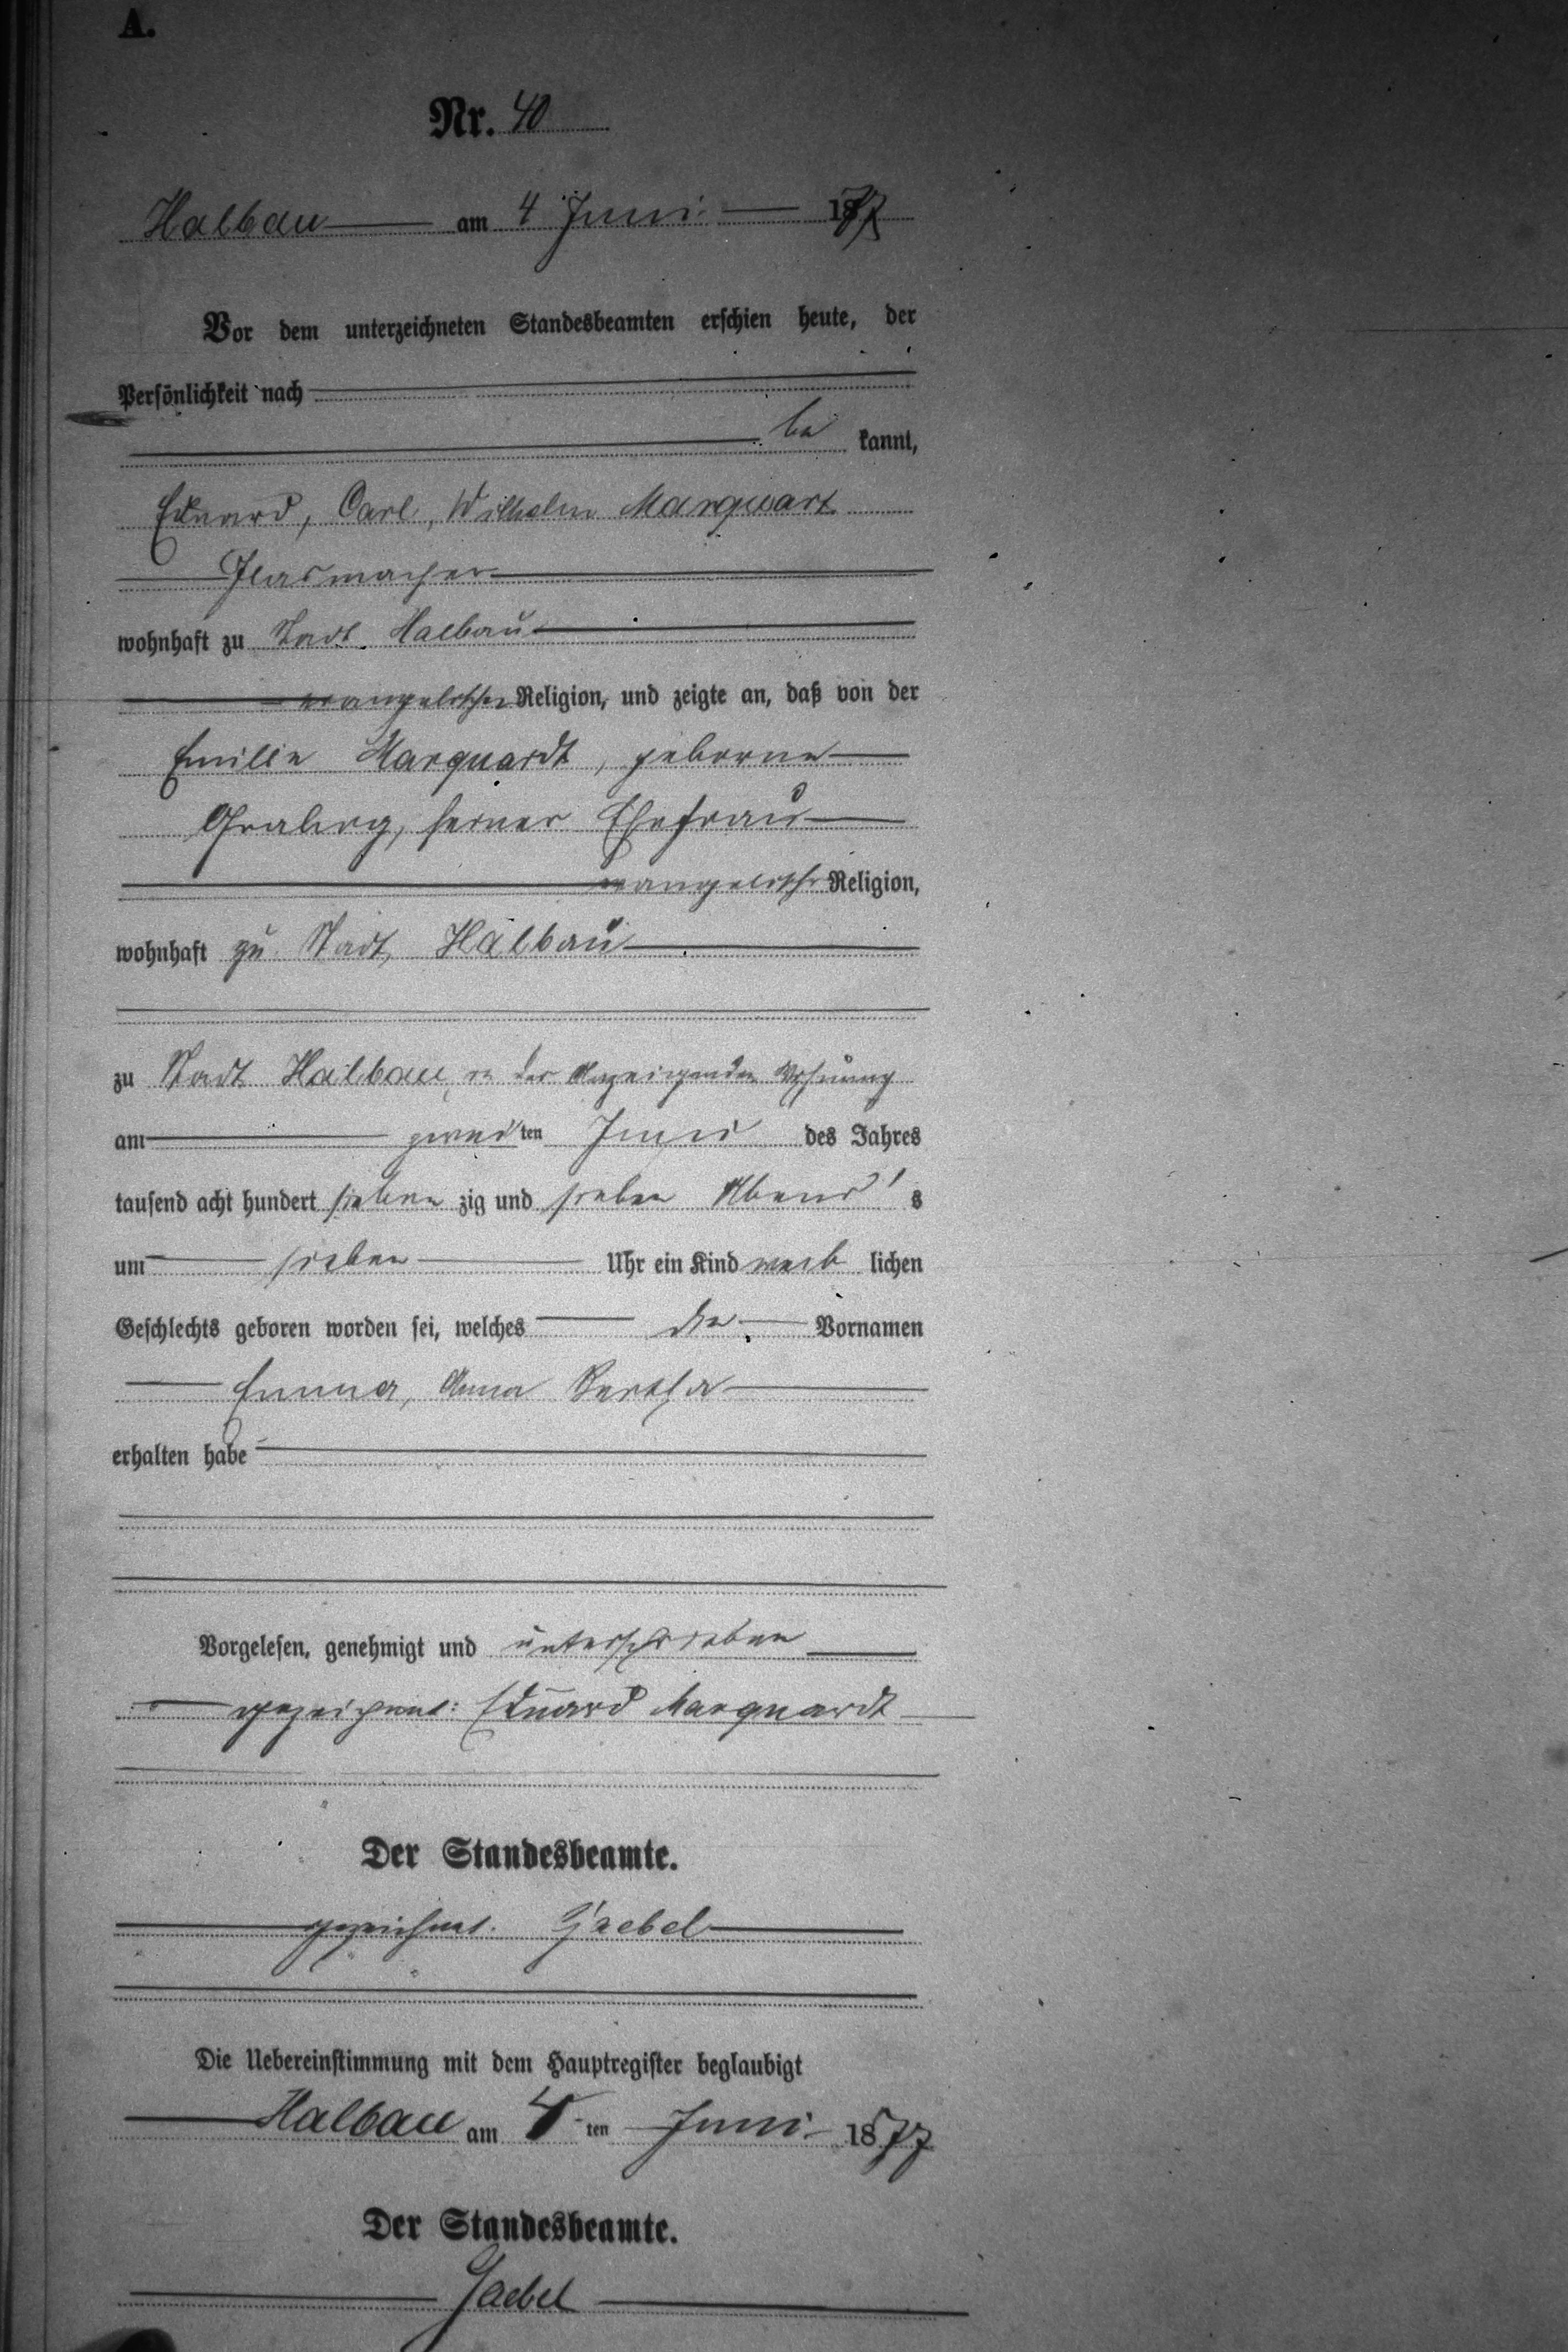 A.
Nr. 40
Halbau am 4 Juni 1877
Vor dem unterzeichneten Standesbeamten erschien heute, der
Persönlichkeit nach
be kannt,
Eduard, Carl, Wilhelm Marquart
Glasmacher
wohnhaft zu Stadt Halbau
evangelischer Religion, und zeigte an, daß von der
Emilie Marquardt, geborene
seiner Ehefrau
evangelischer Religion,
wohnhaft zu Stadt Halbau
zu Stadt Halbau in der Wohnung
am zwei ten Juni des Jahres
tausend acht hundert sieben zig und sieben Abend s
um sieben Uhr ein Kind weib lichen
Geschlechts geboren worden sei, welches die Vornamen
Emma, Anna Bertha
erhalten habe
Vorgelesen, genehmigt und unterschrieben
gezeichnet: Eduard Marquardt
Der Standesbeamte.
gezeichnet. Gaebel
Die Uebereinstimmung mit dem Hauptregister beglaubigt
Halbau am 4 ten Juni 1877
Der Standesbeamte.
Gaebel